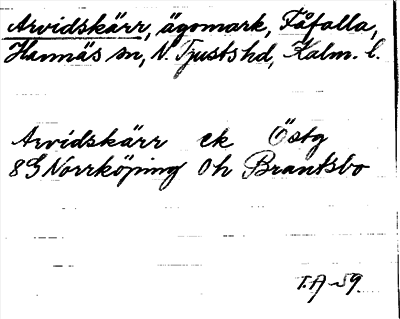 Arvidskärr, ägomark, Fåfalla,
Hannäs sn, N. Tjusts hd, Kalm. l.
Arvidskärr ek Östg
8G Norrköping 0h Brantsbo
T.A-59.